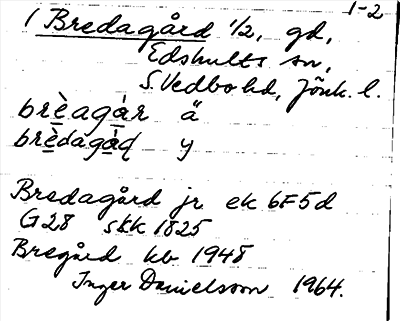 1-2
1 Bredagård 1/2, gd,
Edshults sn,
S. Vedbo hd, Jönk. l.
brèagàr ä
brèdagàd y
Bredagård jr ek 6F5d
G28 skk 1825
Bregård kb 1948
Inger Danielsson 1964.